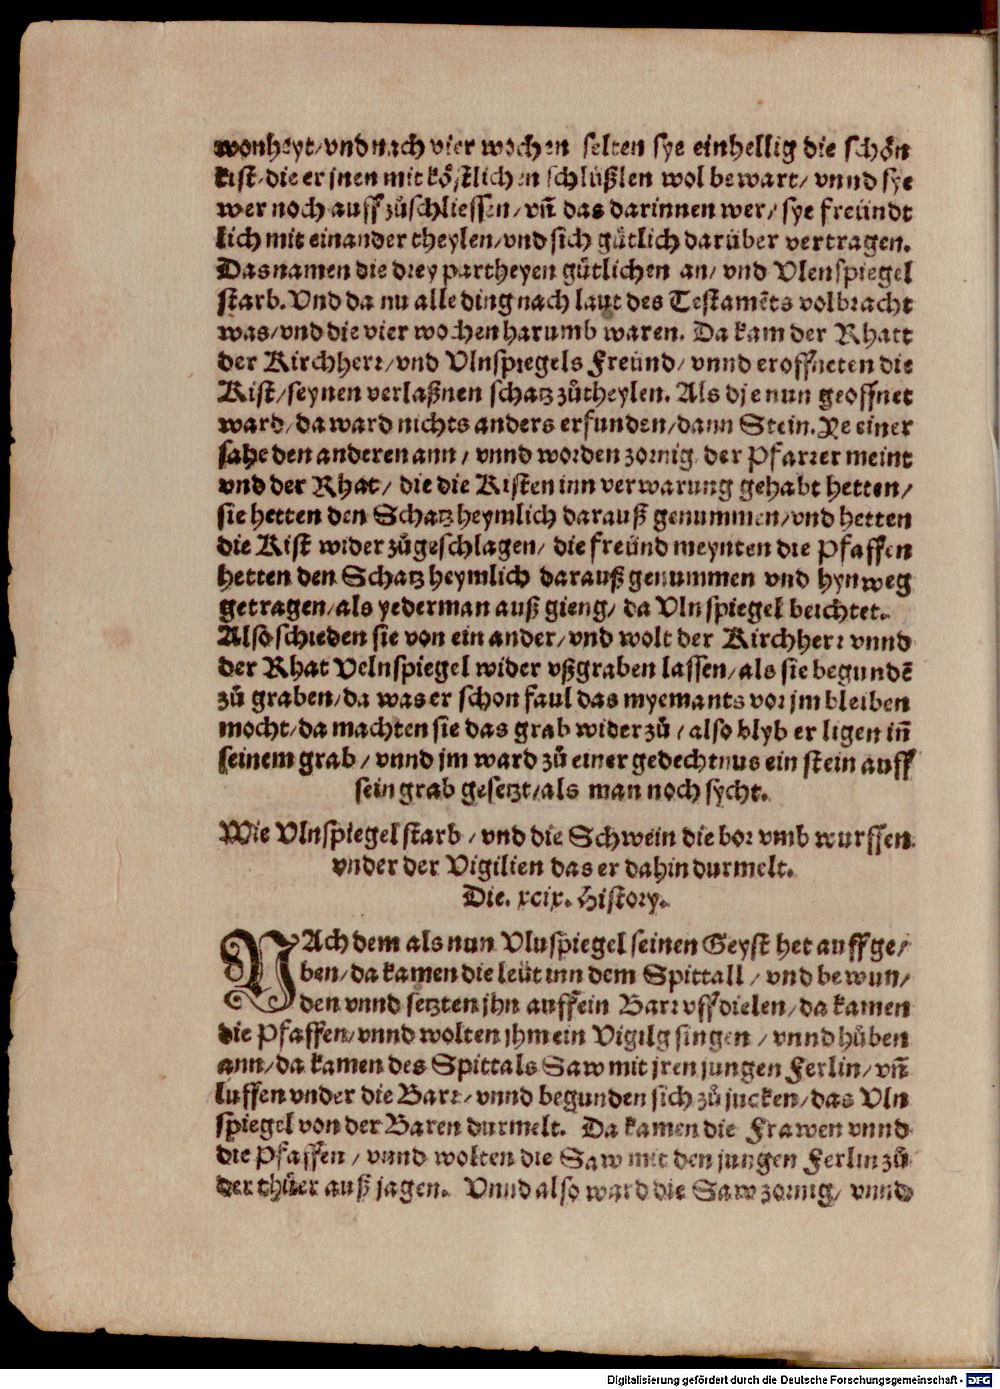 wonheyt/vnd nach vier wochen selten sye einhellig die schön
kist/die er jnen mit köstlichen schlüßlen wol bewart/ vnnd sye
wer noch auff zůschliessen/vñ das darinnen wer/ sye freündt
lich mit einander theylen/vnd sich gütlich darüber vertragen.
Das namen die drey partheyen gütlichen an/ vnd Vlenspiegel
starb. Vnd da nu alle ding nach laut des Testamẽts volbracht
was/vnd die vier wochen harumb waren. Da kam der Rhatt
der Kirchherr/vnd Vlnspiegels Freünd/ vnnd eroffneten die
Kist/seynen verlaßnen schatz zůtheylen. Als dje nun geoffnet
ward/da ward nichts anders erfunden/dann Stein. Ye einer
sahe den anderen ann/ vnnd worden zornig, der Pfarrer meint
vnd der Rhat/ die die Kisten inn verwarung gehabt hetten/
sie hetten den Schatz heymlich darauß genummen/vnd hetten
die Kist wider zůgeschlagen/ die freünd meynten die Pfaffen
hetten den Schatz heymlich darauß genummen vnd hynweg
getragen/als yederman auß gieng/ da Vlnspiegel beichtet.
Also schieden sie von ein ander/vnd wolt der Kirchherr vnnd
der Rhat Velnspiegel wider vßgraben lassen/als sie begundẽ
zů graben/da was er schon faul das myemants vor jm bleiben
mocht/da machten sie das grab wider zů/also blyb er ligen iñ
seinem grab/ vnnd jm ward zů einer gedechtnus ein stein auff
sein grab gesetzt/als man noch sycht.
Wie Vlnspiegel starb/vnd die Schwein die bor vmb wurffen
vnder der Vigilien das er dahin durmelt.
Die. xcix. History.
NAch dem als nun Vlnspiegel seinen Geyst het auffge/
ben/da kamen die leüt inn dem Spittall/ vnd bewun/
den vnnd setzten jhn auff ein Barr vff dielen/da kamen
die Pfaffen/vnnd wolten jhm ein Vigilg singen/vnnd hůben
ann/da kamen des Spittals Saw mit jren jungen Ferlin/vñ
luffen vnder die Barr/vnnd begunden sich zů jucken/das Vln
spiegel von der Baren durmelt. Da kamen die Frawen vnnd
die Pfaffen/ vnnd wolten die Saw mit den jungen Ferlin zů
der thüer auß jagen. Vnnd also ward die Saw zornig/ vnnd
Digitalisierung gefördert durch die Deutsche Forschungsgemeinschaft - DFG